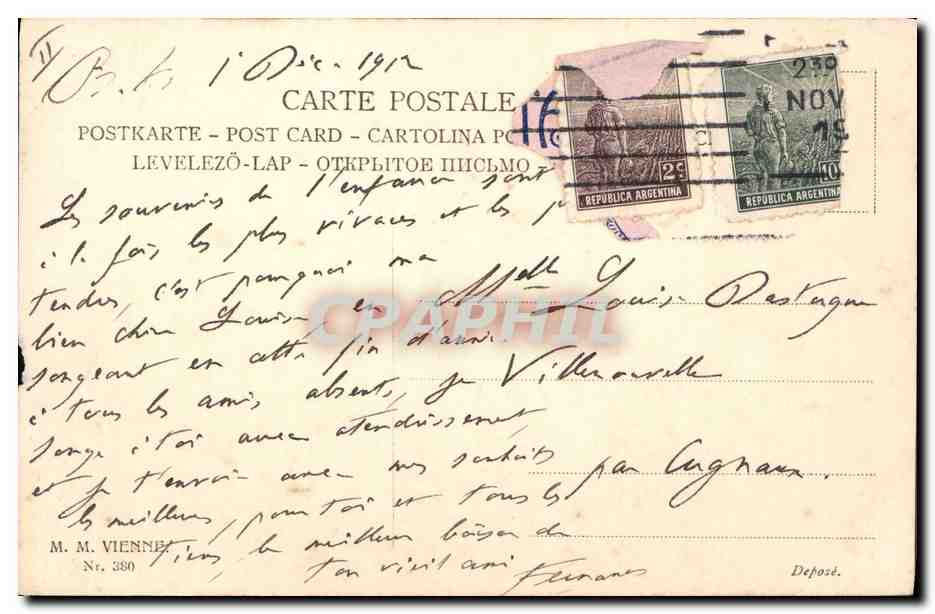 II
B. As 1 Déc. 1912
CARTE POSTALE
POSTKARTE – POST CARD – CARTOLINA PO
LEVELEZŐ-LAP – ОТКРЫТОЕ ПИСЬМО
16
2c
REPUBLICA ARGENTINA
10
REPUBLICA ARGENTINA
230
NOV
19
Les souvenirs de l'enfance sont
à la fois les plus vivaces et les p
tendres, c'est pourquoi ma
bien chère Louise en
songeant en cette fin d'année
à tous les amis absents, je
songe à toi avec attendrissement
et je t'envoie avec mes souhaits
les meilleurs, pour toi et tous les
tiens, le meilleur baiser de
ton vieil ami
Melle Louise
Villenouvelle
par Cugnaux.
CPAPHIL
M. M. VIENNE
Nr. 380
Deposé.